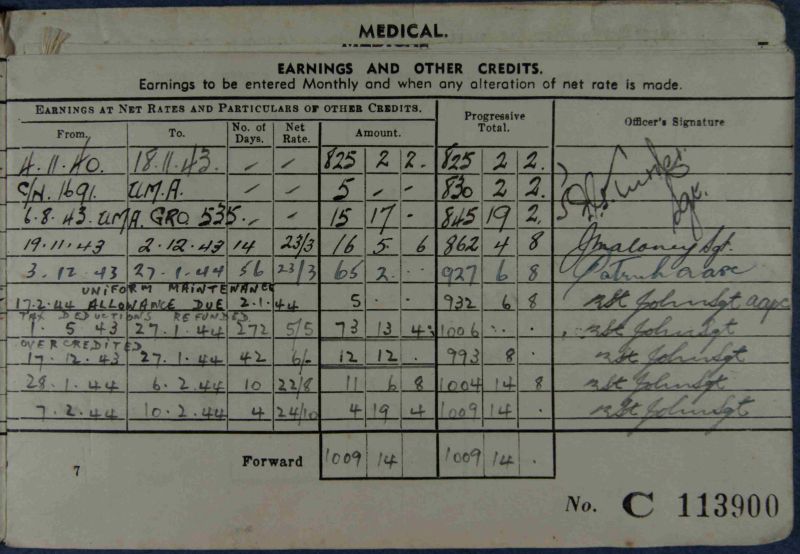 MEDICAL.
MEDICAL
EARNINGS AND OTHER CREDITS.
Earnings to be entered Monthly and when any alteration of net rate is made.
EARNINGS AT NET RATES AND PARTICULARS OF OTHER CREDITS. Progressive Total. Officer's Signature
From. To. No. of Days. Net Rate. Amount.
4.11.40. 18.11.43. - - 825 2 2. 825 2 2
C/N. 1691. U.M.A. - - 5 - - 830 2 2
6.8.43. UMA. GRO 535. - - 15 17 - 845 19 2. Sgt.
19.11.43 2.12.43 14 23/3 16 5 6 862 4 8 J Maloney Sgt.
3.12.43 27.1.44 56 23/3 65 2 . 927 6 8 aapc
UNIFORM MAINTENANCE
17.2.44 ALLOWANCE DUE 2.1.44 5 . . 932 6 8 St John Sgt aapc
TAX DEDUCTIONS REFUNDED
1. 5 43 27.1.44 272 5/5 73 13 4 1006 . . St John Sgt
OVERCREDITED
17.12.43 27.1.44 42 6/- 12 12 . 993 8 . St John Sgt
28.1.44 6.2.44 10 22/8 11 6 8 1004 14 8 St John Sgt
7.2.44 10.2.44 4 24/10 4 19 4 1009 14 . St John Sgt
Forward 1009 14 1009 14 .
7
No. C 113900